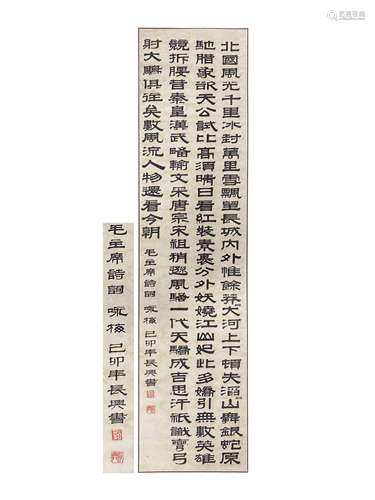 北國風光千里冰封萬里雪飄望長城內外惟餘莽々大河上下頓失滔々山舞銀蛇原
馳臘象欲天公試比高須晴日看紅裝素裹分外妖嬈江山如此多嬌引無數英雄
競折腰昔秦皇漢武略輸文采唐宗宋祖稍遜風騷一代天驕成吉思汗祇識彎弓
射大鵰俱往矣數風流人物還看今朝
毛主席詩詞 咏梅 己卯年長興書
毛主席詩詞 咏梅 己卯年長興書